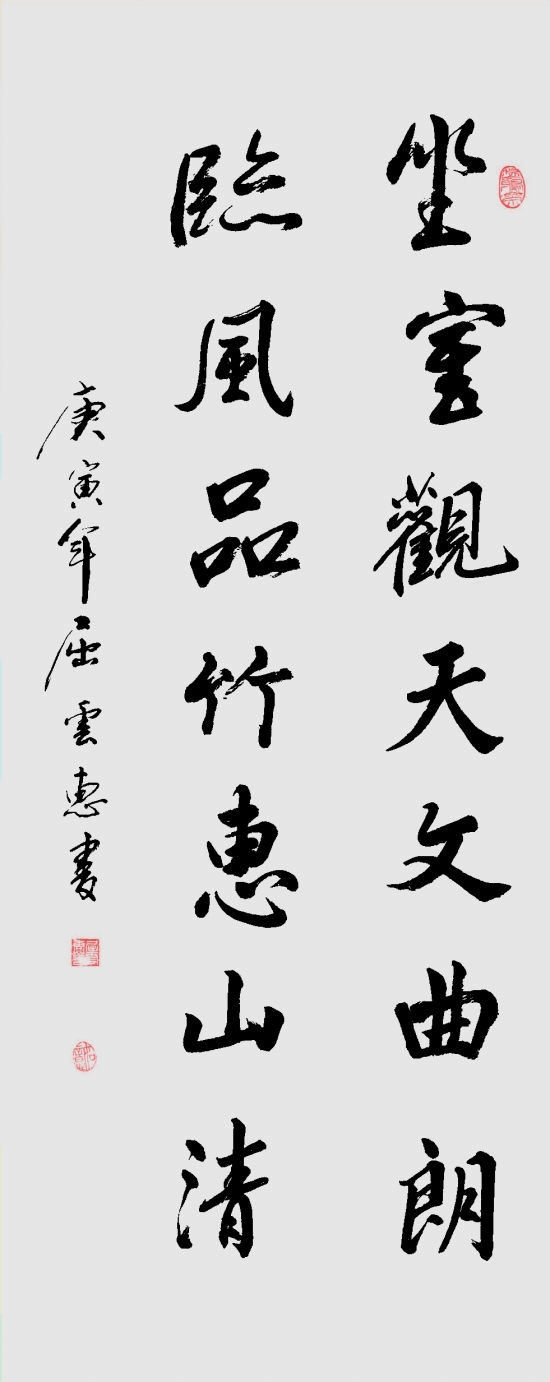 坐室觀天文曲朗
臨風品竹惠山清
庚寅年屈雲惠書